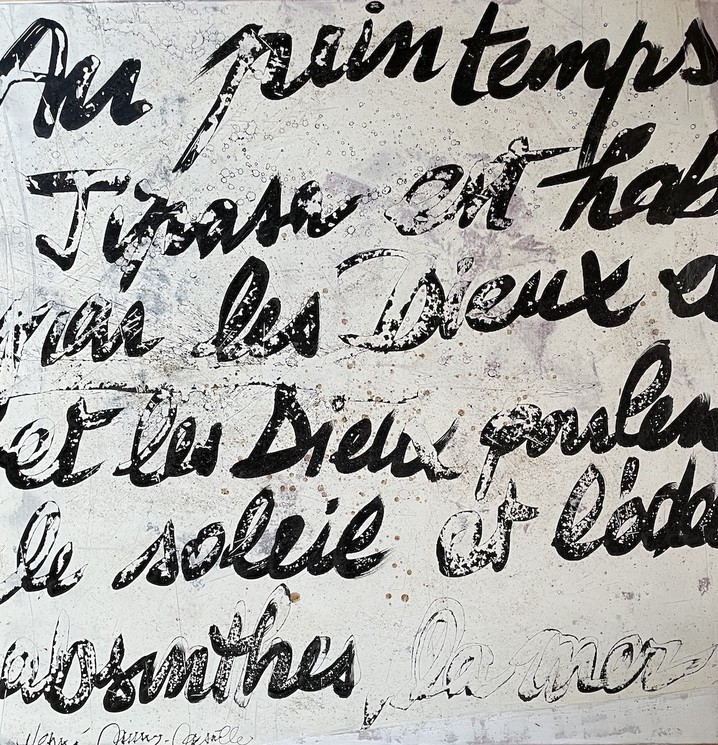 Au printemps
Tipasa est hab
par les Dieux e
et les Dieux parlen
le soleil et l'odo
absinthes la mer